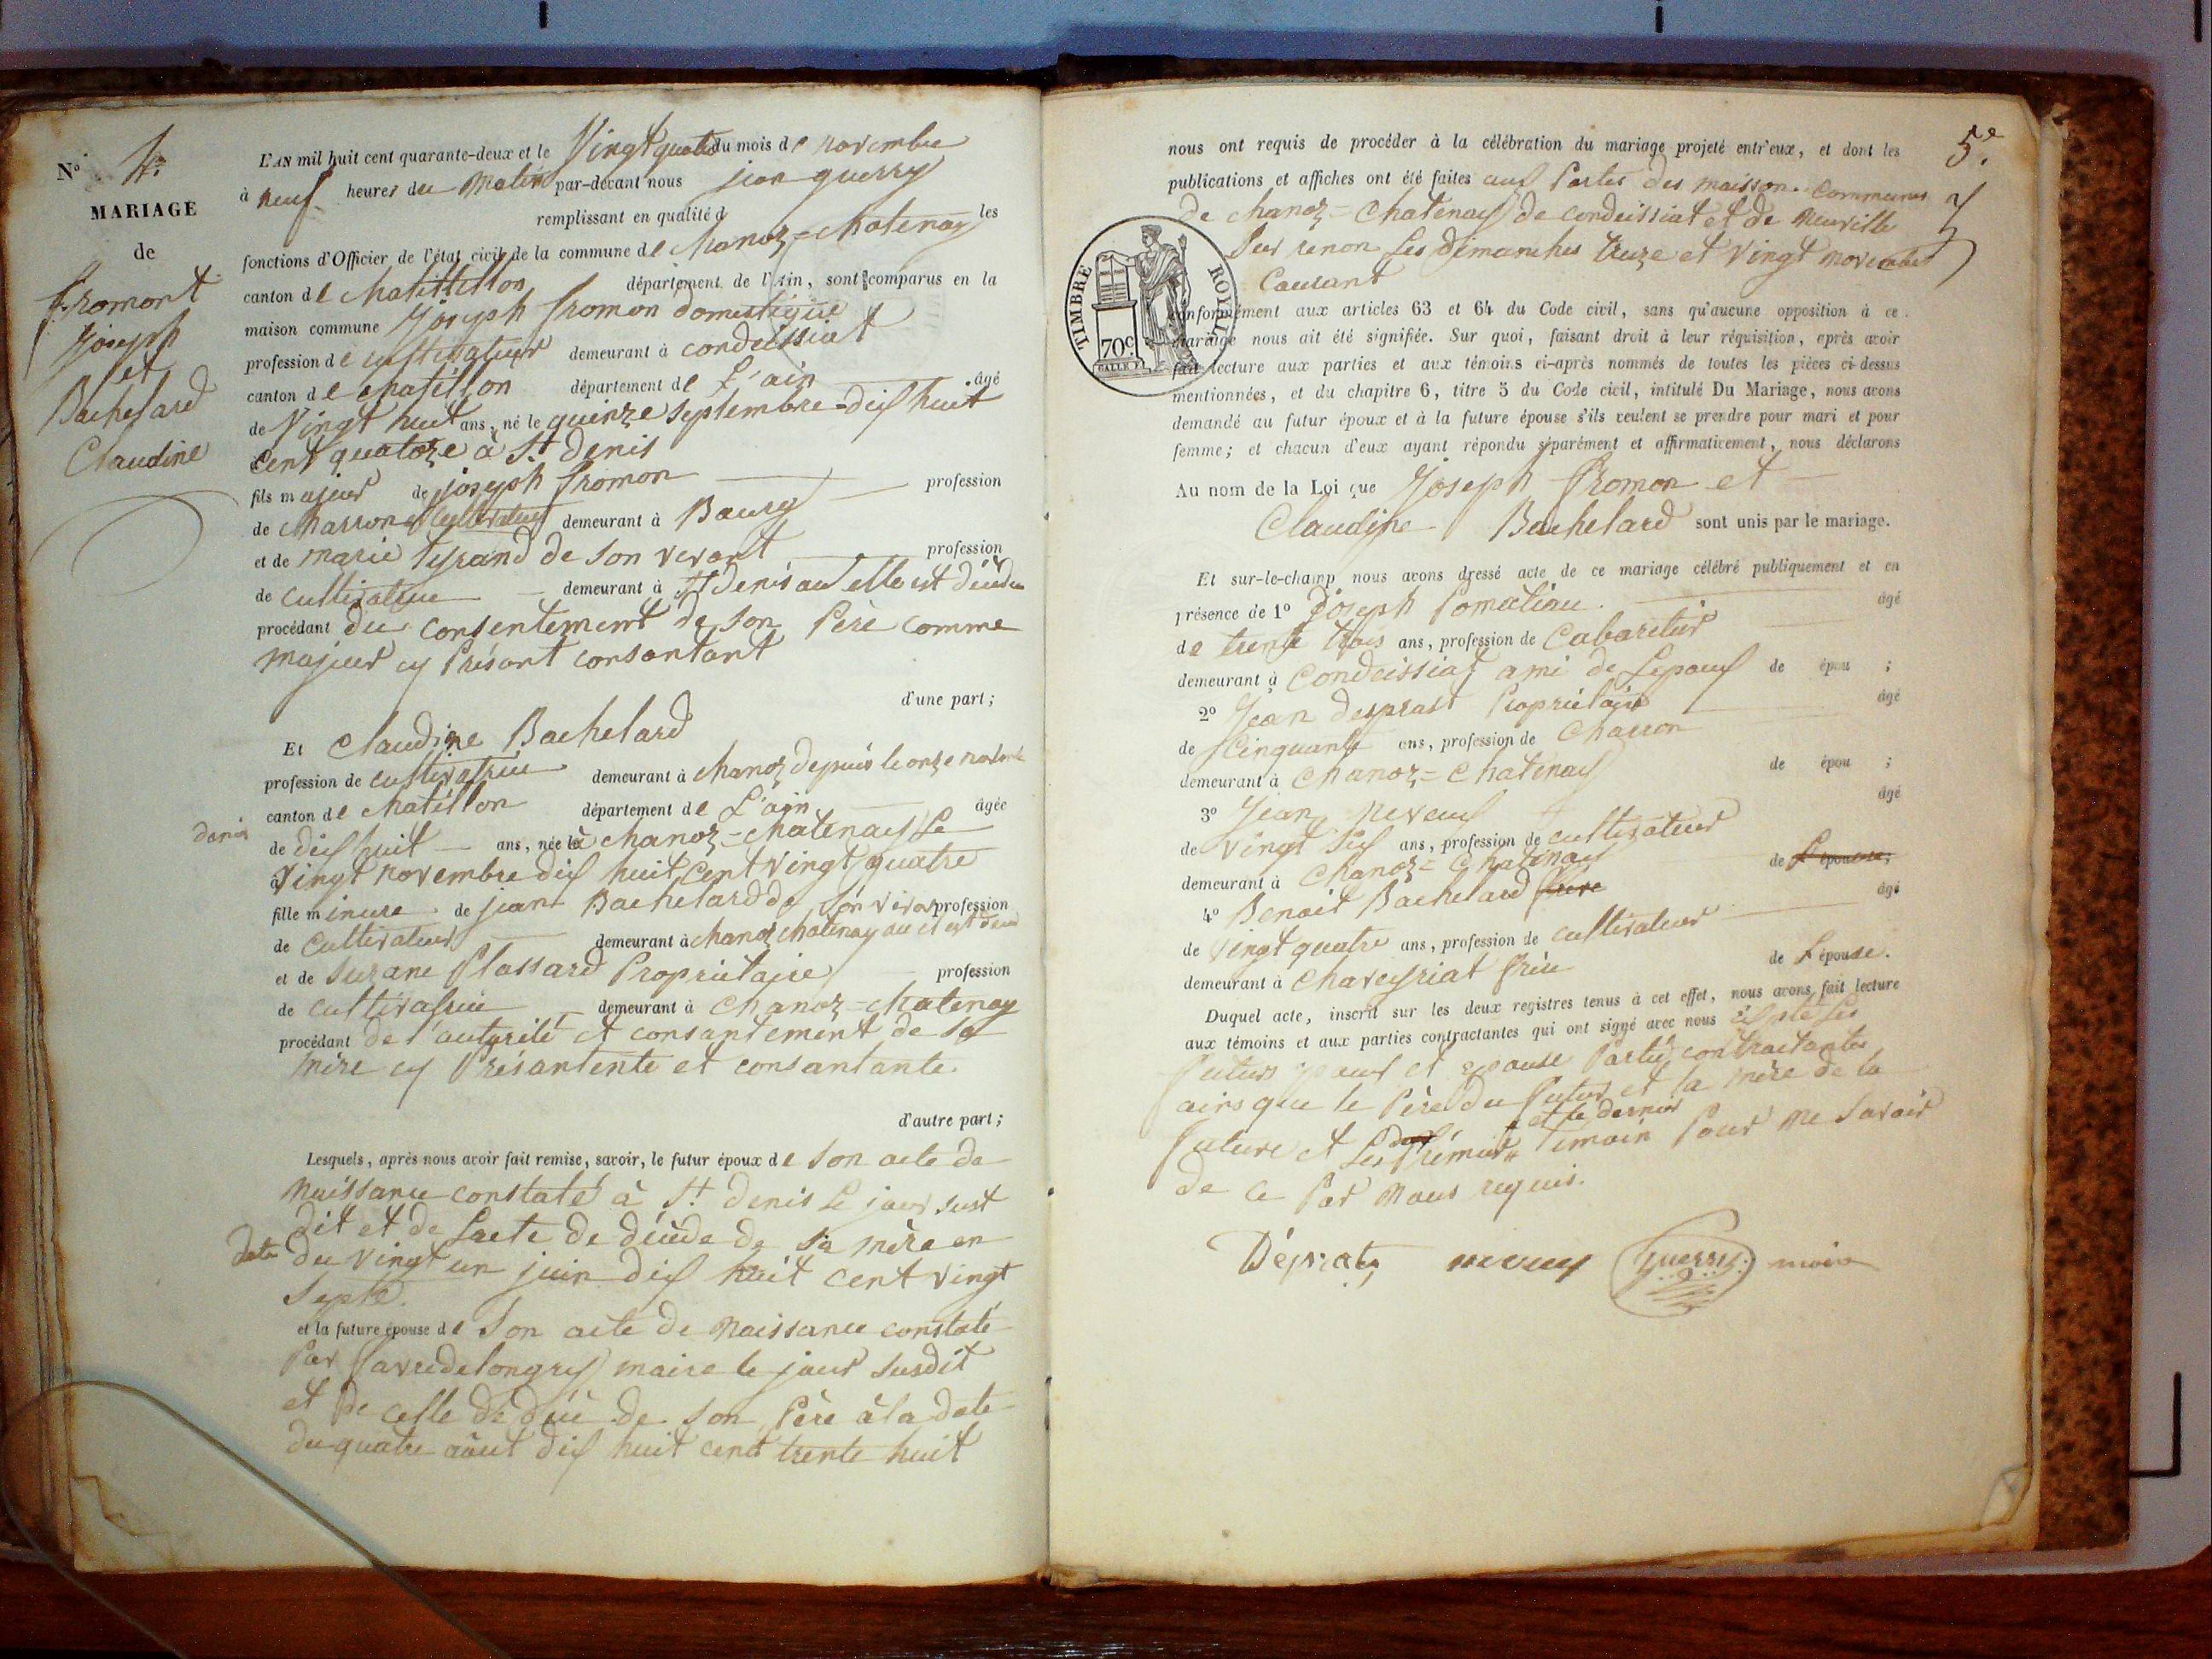 N° 4.
MARIAGE
de
fromont
Joseph
et
Bachelard
Claudine
L'AN mil huit cent quarante-deux et le Vingt quatre du mois de novembre
à neuf heures du Matin par-devant nous jean guerry
remplissant en qualité d les
fonctions d'Officier de l'état civil de la commune de chanoz-chatenay
canton de chatittillon département de l'Ain, sont comparus en la
maison commune Joseph fromon domestique
profession de cultivateur demeurant à condeissiat
canton de chatillon département de L'ain âgé
de Vingt huit ans, né le quinze septembre dix huit
cent quatorze à St denis
fils majeur de joseph fromon profession
de charron et cultivateur demeurant à Bourg
et de marie teyrand de son vivant profession
de cultivatrice demeurant à St denis ou elle est décédée
procédant du consentement de son Père comme
majeur cy Présant consantant
d'une part;
Et claudine Bachelard
profession de cultivatrice demeurant à chanoz depuis le onze novembre
canton de chatillon département de L'ain âgée
dernier
de dix huit ans, née à chanoz-chatenay le
Vingt novembre dix huit cent vingt quatre
fille mineure de jean Bachelard de son vivant profession
de cultivateur demeurant à chanoz chatenay ou il est décédé
et de suzane Plassard Propriétaire profession
de cultivatrice demeurant à chanoz-chatenay
procédant de l'autorité et consantement de sa
mère cy Présantente et consantante.
d'autre part;
Lesquels, après nous avoir fait remise, savoir, le futur époux de son acte de
naissance constaté à St denis le jour sust
dit et de Lacte de décède de sa mère en
date du vingt un juin dix huit cent vingt
septe.
et la future épouse de son acte de naissance constaté
Par favredelongry maire le jour susdit
et de celle de décè de son Père à la date
du quatre aôut dix huit cent trente huit
5e.
nous ont requis de procéder à la célébration du mariage projeté entr'eux, et dont les
publications et affiches ont été faites aux Portes des maisson communes
de chanoz-chatenay de condeissiat et de neuville
sur renon les dimanches treize et vingt novembre
courant
conformément aux articles 63 et 64 du Code civil, sans qu'aucune opposition à ce
mariage nous ait été signifiée. Sur quoi, faisant droit à leur réquisition, après avoir
fait lecture aux parties et aux témoins ci-après nommés de toutes les pièces ci-dessus
mentionnées, et du chapitre 6, titre 5 du Code civil, intitulé Du Mariage, nous avons
demandé au futur époux et à la future épouse s'ils veulent se prendre pour mari et pour
femme; et chacun d'eux ayant répondu séparément et affirmativement, nous déclarons
TIMBRE ROYAL
70c
Au nom de la Loi que Joseph fromon et
Claudine Bachelard sont unis par le mariage.
Et sur-le-champ nous avons dressé acte de ce mariage célébré publiquement et en
présence de 1° joseph Pomatiau âgé
de trente trois ans, profession de Cabaretier
demeurant à Condeissiat ami de Lepoux de épou ;
2° Jean desprast Propriétaire âgé
de Cinquante ans, profession de Charron
demeurant à Chanoz-Chatenay de épou ;
3° Jean neveux âgé
de Vingt six ans, profession de cultivateur
demeurant à Chanoz-Chatenay de L'épouse;
4° Benoit Bachelard frère âgé
de Vingt quatre ans, profession de cultivateur
demeurant à Chaveyriat frère de L'épouse.
Duquel acte, inscrit sur les deux registres tenus à cet effet, nous avons fait lecture
aux témoins et aux parties contractantes qui ont signé avec nous exsepte les
futurs epoux et epouse Partie contractantes
ainsque le Père du futur et la mère de la
et le dernier
future et Les premier témoin Pour ne savoir
de ce Par nous requis.
Déprats neveux guerry maire